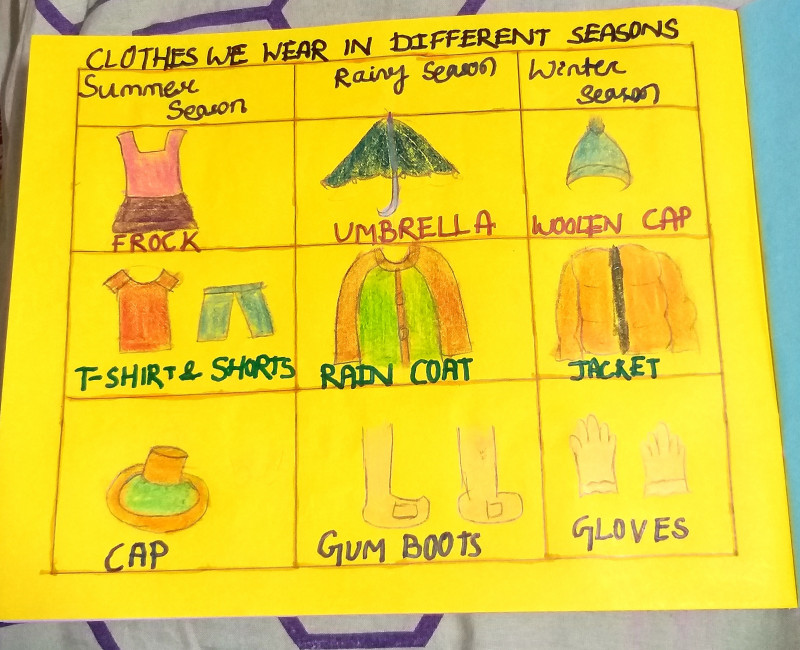 CLOTHES WE WEAR IN DIFFERENT SEASONS
Summer
Season
Rainy Season
Winter
Season
FROCK
UMBRELLA
WOOLEN CAP
T-SHIRT & SHORTS
RAIN COAT
JACKET
CAP
GUM BOOTS
GLOVES